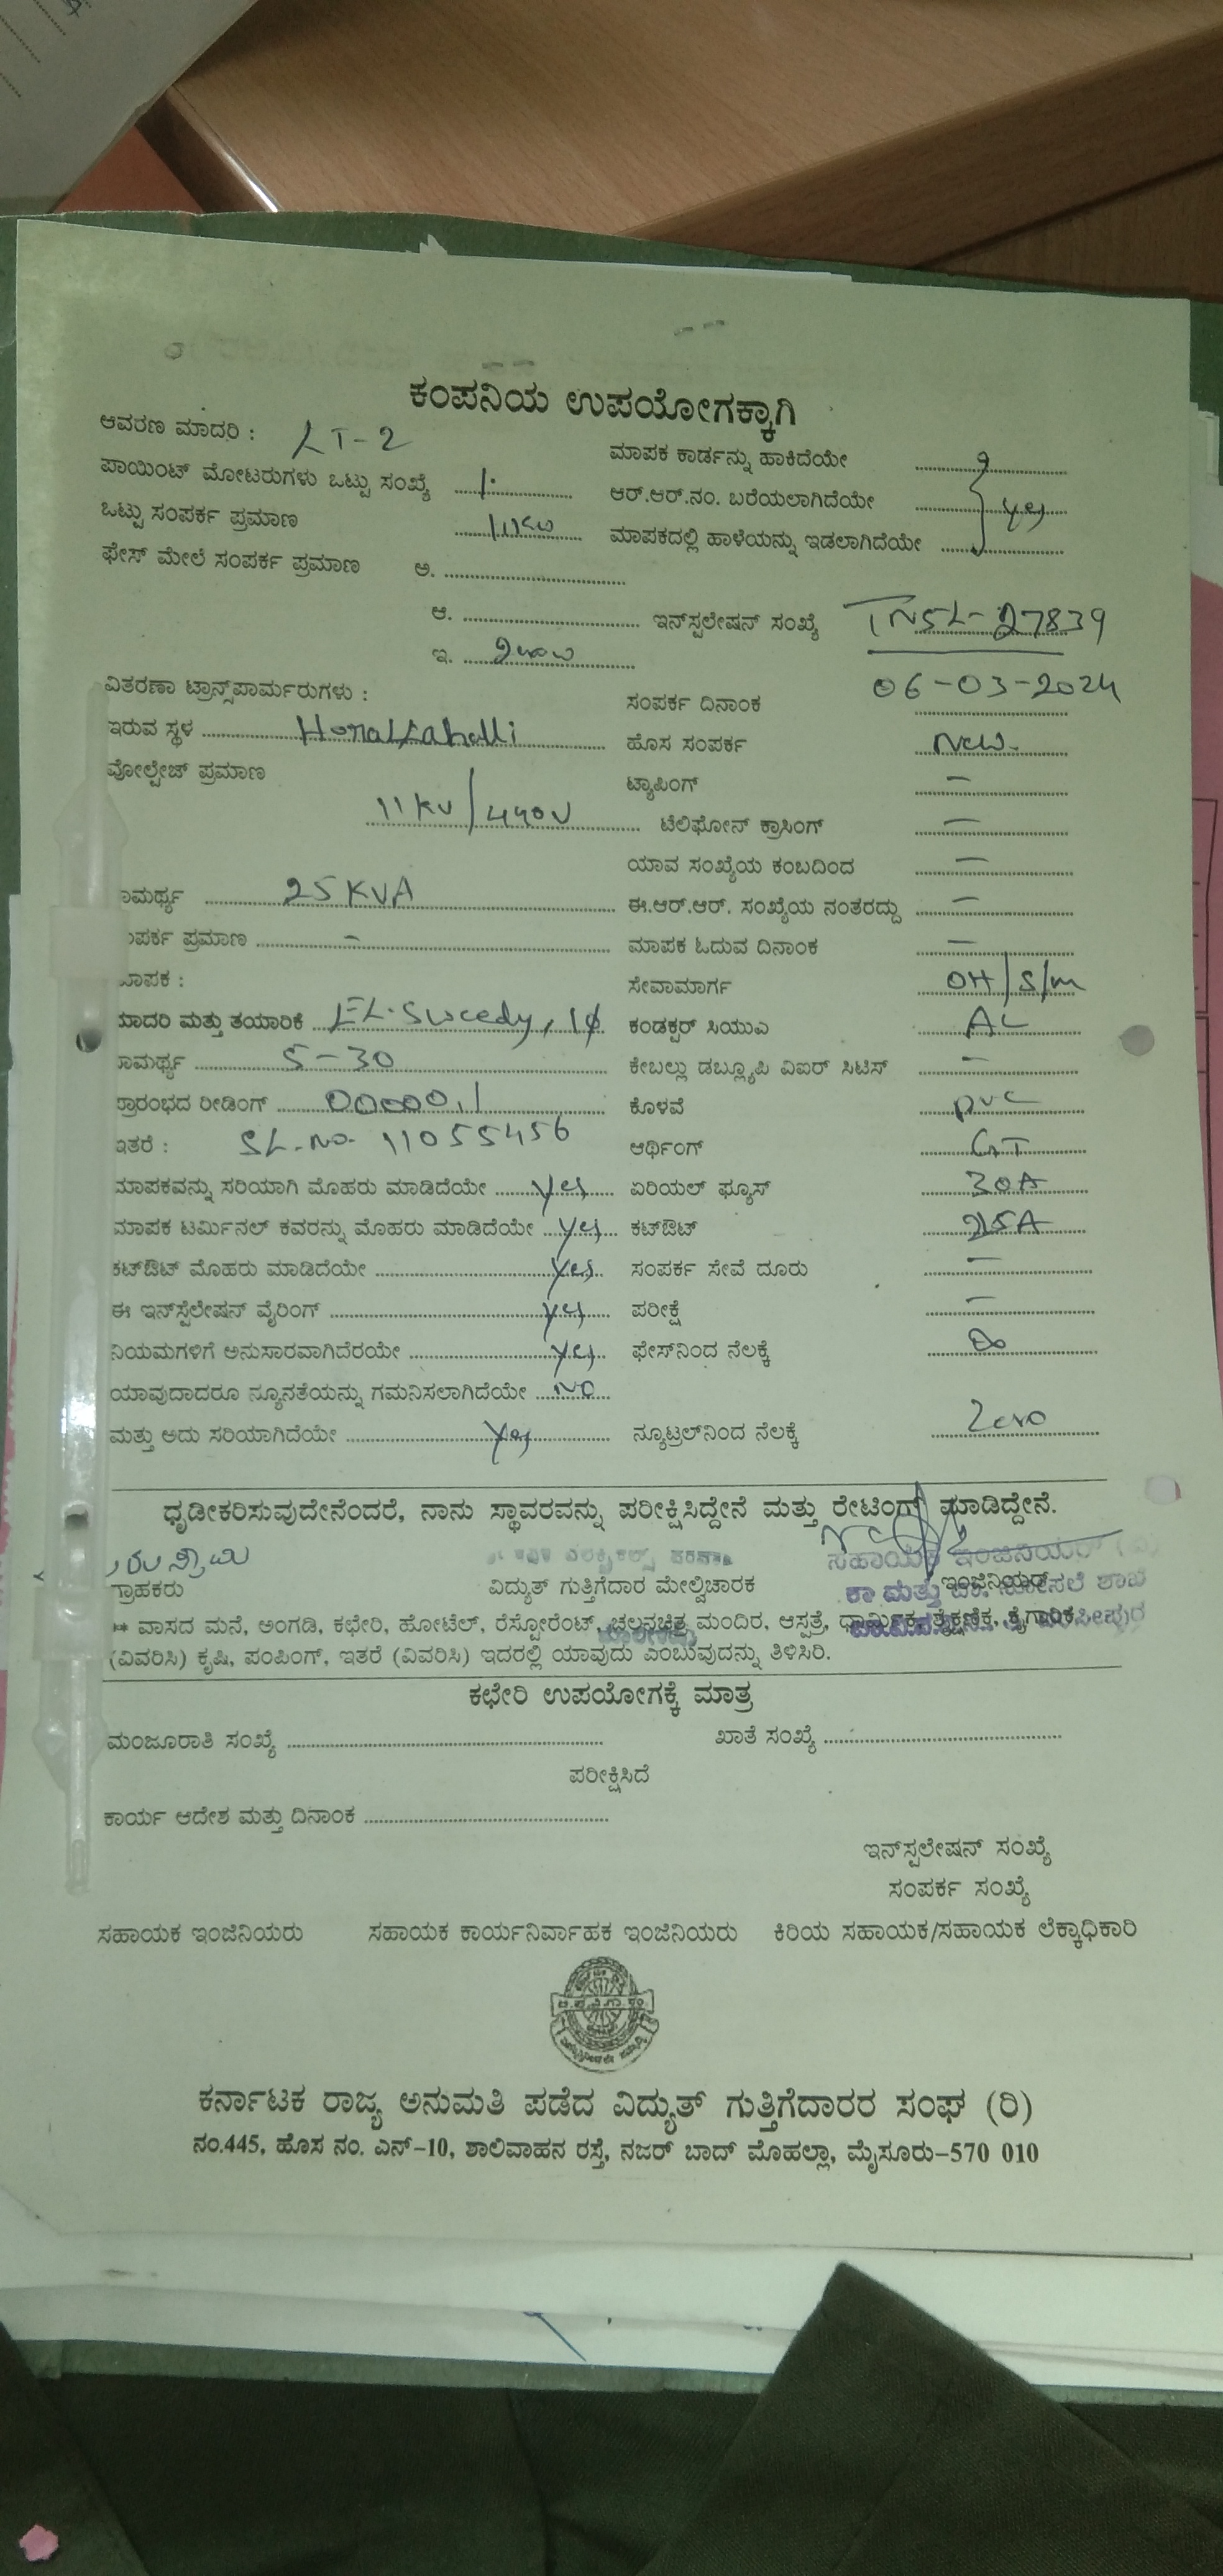 ಕಂಪನಿಯ ಉಪಯೋಗಕ್ಕಾಗಿ
ಆವರಣ ಮಾದರಿ : LT-2
ಮಾಪಕ ಕಾರ್ಡನ್ನು ಹಾಕಿದೆಯೇ
ಪಾಯಿಂಟ್ ಮೋಟರುಗಳು ಒಟ್ಟು ಸಂಖ್ಯೆ
ಆರ್.ಆರ್.ನಂ. ಬರೆಯಲಾಗಿದೆಯೇ yes
ಒಟ್ಟು ಸಂಪರ್ಕ ಪ್ರಮಾಣ
ಮಾಪಕದಲ್ಲಿ ಹಾಳೆಯನ್ನು ಇಡಲಾಗಿದೆಯೇ
ಫೇಸ್ ಮೇಲೆ ಸಂಪರ್ಕ ಪ್ರಮಾಣ ಅ.
ಆ. ಇನ್‌ಸ್ಟಲೇಷನ್ ಸಂಖ್ಯೆ TNSL-27839
ಇ.
ವಿತರಣಾ ಟ್ರಾನ್ಸ್‌ಪಾರ್ಮರುಗಳು :
ಸಂಪರ್ಕ ದಿನಾಂಕ 06-03-2024
ಇರುವ ಸ್ಥಳ
ಹೊಸ ಸಂಪರ್ಕ New
ವೋಲ್ಟೇಜ್ ಪ್ರಮಾಣ
ಟ್ಯಾಪಿಂಗ್ –
11KV/440V ಟೆಲಿಫೋನ್ ಕ್ರಾಸಿಂಗ್ –
ಯಾವ ಸಂಖ್ಯೆಯ ಕಂಬದಿಂದ –
ಾಮರ್ಥ್ಯ 25KVA ಈ.ಆರ್.ಆರ್. ಸಂಖ್ಯೆಯ ನಂತರದ್ದು –
ಂಪರ್ಕ ಪ್ರಮಾಣ – ಮಾಪಕ ಓದುವ ದಿನಾಂಕ –
ಮಾಪಕ : ಸೇವಾಮಾರ್ಗ OH/S/m
ಮಾದರಿ ಮತ್ತು ತಯಾರಿಕೆ EL.Swcedy, 1φ ಕಂಡಕ್ಟರ್ ಸಿಯುಎ AL
ಾಮರ್ಥ್ಯ 5-30 ಕೇಬಲ್ಲು ಡಬ್ಲ್ಯೂಪಿ ವಿಐರ್ ಸಿಟಿಸ್ –
ಪ್ರಾರಂಭದ ರೀಡಿಂಗ್ 00000.1 ಕೊಳವೆ PVC
ಇತರೆ : SL.No. 11055456 ಆರ್ಥಿಂಗ್
ಮಾಪಕವನ್ನು ಸರಿಯಾಗಿ ಮೊಹರು ಮಾಡಿದೆಯೇ yes ಏರಿಯಲ್ ಫ್ಯೂಸ್ 30A
ಮಾಪಕ ಟರ್ಮಿನಲ್ ಕವರನ್ನು ಮೊಹರು ಮಾಡಿದೆಯೇ yes ಕಟ್‌ಔಟ್
ಕಟ್‌ಔಟ್ ಮೊಹರು ಮಾಡಿದೆಯೇ yes ಸಂಪರ್ಕ ಸೇವೆ ದೂರು –
ಈ ಇನ್‌ಸ್ಪೆಲೇಷನ್ ವೈರಿಂಗ್ yes ಪರೀಕ್ಷೆ –
ನಿಯಮಗಳಿಗೆ ಅನುಸಾರವಾಗಿದೆರಯೇ yes ಫೇಸ್‌ನಿಂದ ನೆಲಕ್ಕೆ ∞
ಯಾವುದಾದರೂ ನ್ಯೂನತೆಯನ್ನು ಗಮನಿಸಲಾಗಿದೆಯೇ NO
ಮತ್ತು ಅದು ಸರಿಯಾಗಿದೆಯೇ Yes ನ್ಯೂಟ್ರಲ್‌ನಿಂದ ನೆಲಕ್ಕೆ Zero
ಧೃಡೀಕರಿಸುವುದೇನೆಂದರೆ, ನಾನು ಸ್ಥಾವರವನ್ನು ಪರೀಕ್ಷಿಸಿದ್ದೇನೆ ಮತ್ತು ರೇಟಿಂಗ್ ಮಾಡಿದ್ದೇನೆ.
ಗ್ರಾಹಕರು ವಿದ್ಯುತ್ ಗುತ್ತಿಗೆದಾರ ಮೇಲ್ವಿಚಾರಕ ಇಂಜಿನಿಯರ್
** ವಾಸದ ಮನೆ, ಅಂಗಡಿ, ಕಛೇರಿ, ಹೋಟೆಲ್, ರೆಸ್ಟೋರೆಂಟ್, ಚಲನಚಿತ್ರ ಮಂದಿರ, ಆಸ್ಪತ್ರೆ, ಧಾರ್ಮಿಕ, ಶೈಕ್ಷಣಿಕ, ಕೈಗಾರಿಕೆ,
(ವಿವರಿಸಿ) ಕೃಷಿ, ಪಂಪಿಂಗ್, ಇತರೆ (ವಿವರಿಸಿ) ಇದರಲ್ಲಿ ಯಾವುದು ಎಂಬುವುದನ್ನು ತಿಳಿಸಿರಿ.
ಕಛೇರಿ ಉಪಯೋಗಕ್ಕೆ ಮಾತ್ರ
ಮಂಜೂರಾತಿ ಸಂಖ್ಯೆ ಖಾತೆ ಸಂಖ್ಯೆ
ಪರೀಕ್ಷಿಸಿದೆ
ಕಾರ್ಯ ಆದೇಶ ಮತ್ತು ದಿನಾಂಕ
ಇನ್‌ಸ್ಟಲೇಷನ್ ಸಂಖ್ಯೆ
ಸಂಪರ್ಕ ಸಂಖ್ಯೆ
ಸಹಾಯಕ ಇಂಜಿನಿಯರು ಸಹಾಯಕ ಕಾರ್ಯನಿರ್ವಾಹಕ ಇಂಜಿನಿಯರು ಕಿರಿಯ ಸಹಾಯಕ/ಸಹಾಯಕ ಲೆಕ್ಕಾಧಿಕಾರಿ
ಕರ್ನಾಟಕ ರಾಜ್ಯ ಅನುಮತಿ ಪಡೆದ ವಿದ್ಯುತ್ ಗುತ್ತಿಗೆದಾರರ ಸಂಘ (ರಿ)
ನಂ.445, ಹೊಸ ನಂ. ಎನ್-10, ಶಾಲಿವಾಹನ ರಸ್ತೆ, ನಜರ್ ಬಾದ್ ಮೊಹಲ್ಲಾ, ಮೈಸೂರು-570 010